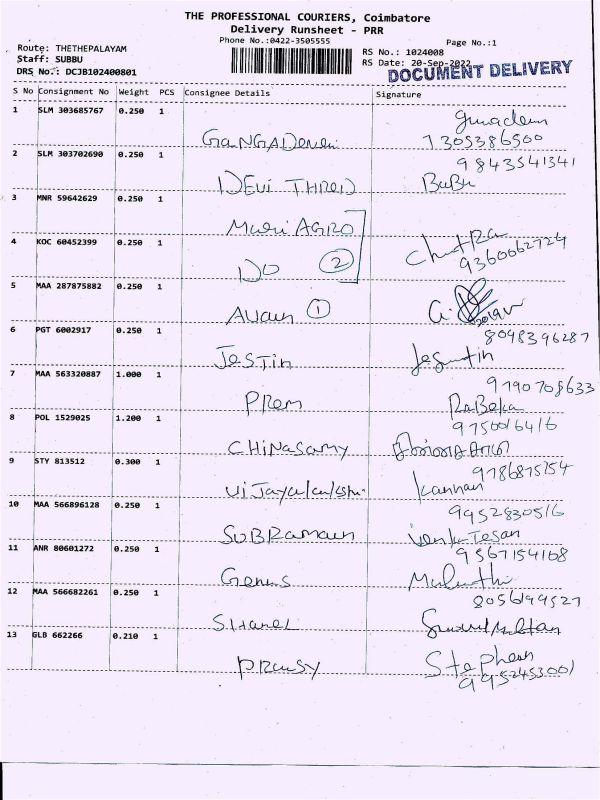 THE PROFESSIONAL COURIERS, Coimbatore
Delivery Runsheet - PRR
Phone No.:0422-3505555
Page No.:1
Route: THETHEPALAYAM
RS No.: 1024008
Staff: SUBBU
RS Date: 20-Sep-2022
DRS No.: DCJB102400801
DOCUMENT DELIVERY
S No Consignment No Weight PCS Consignee Details Signature
1 SLM 303685767 0.250 1
7305386500
2 SLM 303702690 0.250 1
9843541341
DEVI THRED BaBu
3 MNR 59642629 0.250 1
Muri AGRO
4 KOC 60452399 0.250 1
DO 2 9360062724
5 MAA 287875882 0.250 1
1
6 PGT 6002917 0.250 1
8098396287
JESTin Jesmtin
7 MAA 563320887 1.000 1
9790708633
PRem RaBeka
8 POL 1529025 1.200 1
9750016416
CHINASAMY
9 STY 813512 0.300 1
Kannan
10 MAA 566896128 0.250 1
9952830516
SUBRamani VenkaTesan
11 ANR 80601272 0.250 1
9567154108
Genus
12 MAA 566682261 0.250 1
13 GLB 662266 0.210 1
Stephen
9952453001